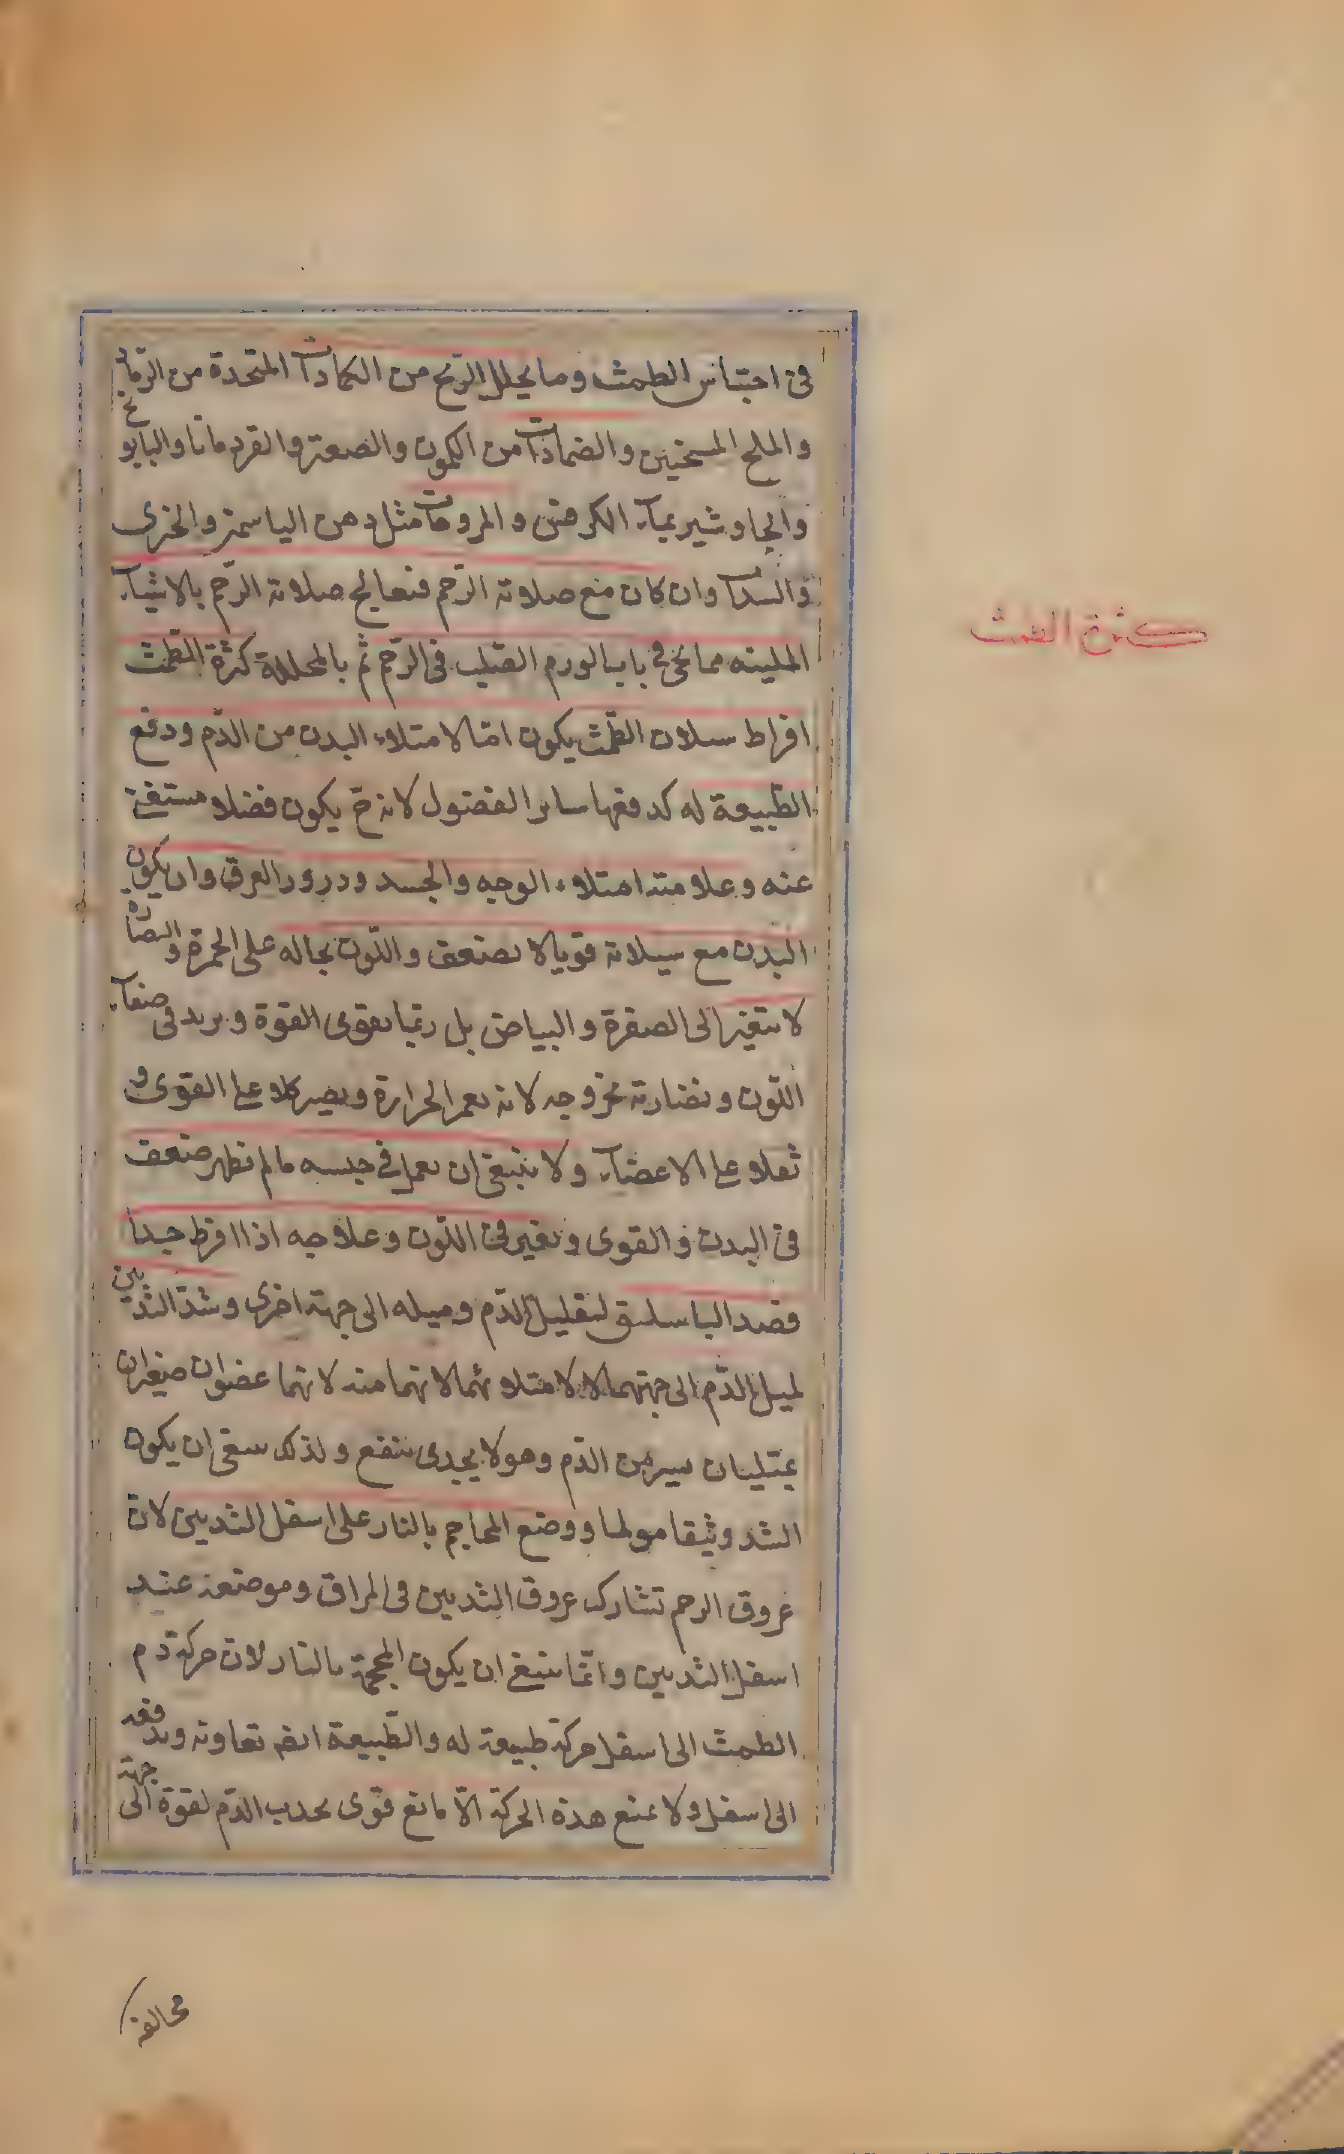 فى احتباس الطمث وما يحلل الريح من الكمادات المتخذة من الرماد
والملح المسخنين والضمادات من الكمون والصعتر والقردمانا والبابونج
والجاوشير بماء الكرفس والمروخات مثل دهن الياسمين والخيرى
والسداب وان كان مع صلابة الرحم فتعالج صلابة الرحم بالاشياء
الملينه مما فى باب الورم الصلب فى الرحم ثم بالمحللة كثرة الطمث
افراط سيلان الطمث يكون امّا لامتلاء البدن من الدّم ودفع
الطبيعة له كدفعها سائر الفضول لانه ح يكون فضلا مستغنى
عنه وعلامته امتلاء الوجه والجسد ودرور العرق وان يكون
البدن مع سيلانه قويا لا يضعف واللّون بحاله على الحمرة والنضارة
لا يتغير الى الصفرة والبياض بل ربّما يقوى القوة ويزيد فى صفاء
اللّون ونضارته بخروجه لانه يغمر الحرارة ويصير كلا على القوى و
ثقلا على الاعضاء ولا ينبغى ان يعمل فى حبسه ما لم يظهر ضعف
فى البدن والقوى وتغير فى اللّون وعلاجه اذا افرط جدا
فصد الباسليق لتقليل الدّم وميله الى جهة اخرى وشدّ الثديين
لميل الدّم الى جهتهما لا لامتلائهما منه لانهما عضوان صغيران
يمتليان بيسير من الدّم وهو لا يجدى بنفع ولذلك ينبغى ان يكون
الشد وثيقا مولما ووضع المحاجم بالنار على اسفل الثديين لان
عروق الرحم تشارك عروق الثديين فى المراق وموضعه عند
اسفل الثديين وانّما ينبغى ان يكون المحجمة بالنار لان حركة دم
الطمث الى اسفل حركة طبيعة له والطّبيعة ايضا تعاونه وتدفعه
الى اسفل ولا يمنع هذه الحركة الّا مانع قوى يجذب الدّم لقوة الى جهة
كثرة الطمث
مخالفة